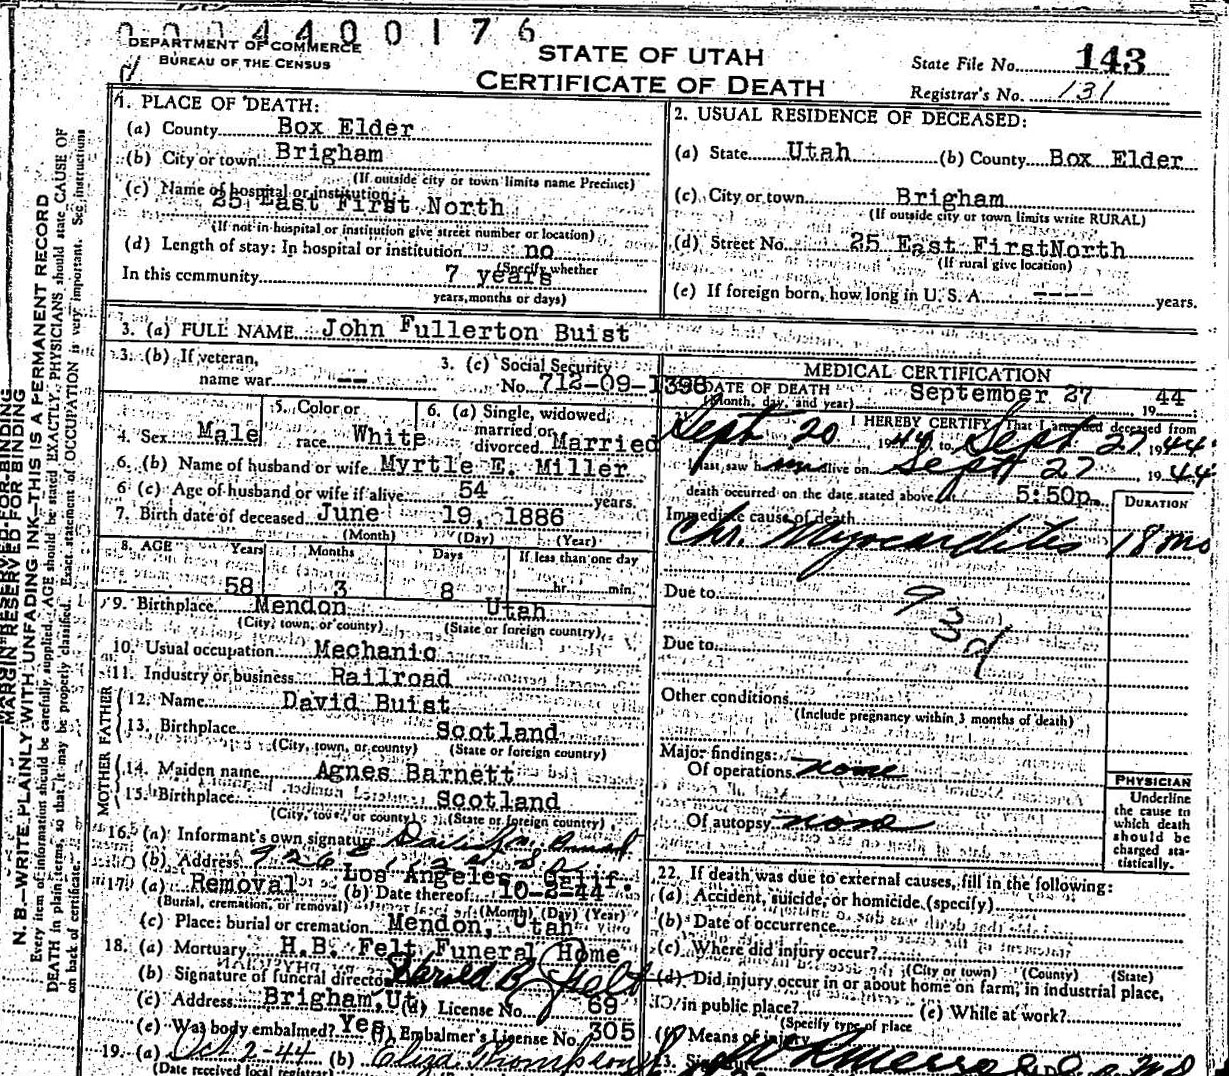 0004400176
DEPARTMENT OF COMMERCE
BUREAU OF THE CENSUS
STATE OF UTAH
CERTIFICATE OF DEATH
State File No. 143
Registrar's No. 131
1. PLACE OF DEATH:
(a) County Box Elder
(b) City or town Brigham
(If outside city or town limits name Precinct)
(c) Name of hospital or institution:
25 East First North
(If not in hospital or institution give street number or location)
(d) Length of stay: In hospital or institution no
(Specify whether
In this community 7 years
years, months or days)
2. USUAL RESIDENCE OF DECEASED:
(a) State Utah (b) County Box Elder
(c) City or town Brigham
(If outside city or town limits write RURAL)
(d) Street No. 25 East FirstNorth
(If rural give location)
(e) If foreign born, how long in U. S. A. ---- years.
3. (a) FULL NAME John Fullerton Buist
3. (b) If veteran,
name war --
3. (c) Social Security
No. 712-09-1398
4. Sex Male
5. Color or
race White
6. (a) Single, widowed,
married or
divorced Married
6. (b) Name of husband or wife Myrtle E. Miller
6 (c) Age of husband or wife if alive 54 years.
7. Birth date of deceased June 19, 1886
(Month) (Day) (Year)
8. AGE Years Months Days If less than one day
58 3 8 hr. min.
9. Birthplace Mendon Utah
(City, town, or county) (State or foreign country)
10. Usual occupation Mechanic
11. Industry or business Railroad
FATHER
12. Name David Buist
13. Birthplace Scotland
(City, town, or county) (State or foreign country)
MOTHER
14. Maiden name Agnes Barnett
15. Birthplace Scotland
(City, town, or county) (State or foreign country)
16. (a) Informant's own signature
(b) Address 926
Los Angeles, Calif.
17. (a) Removal (b) Date thereof 10-2-44
(Burial, cremation, or removal) (Month) (Day) (Year)
(c) Place: burial or cremation Mendon, Utah
18. (a) Mortuary H.B. Felt Funeral Home
(b) Signature of funeral director Harold B Felt
(c) Address Brigham, Ut. (d) License No. 69
(e) Was body embalmed? Yes (f) Embalmer's License No. 305
19. (a) Oct 2-44 (b) Eliza Thompson
(Date received local registrar)
MEDICAL CERTIFICATION
DATE OF DEATH September 27, 19 44
(Month, day, and year)
21. I HEREBY CERTIFY, That I attended deceased from
Sept 20 1944 to Sept 27 1944
I last saw him alive on Sept 27, 1944
death occurred on the date stated above at 5:50p.m.
DURATION
Immediate cause of death
Chr. Myocardites 18 mo
Due to
93d
Due to
Other conditions
(Include pregnancy within 3 months of death)
Major findings:
Of operations none
Of autopsy none
PHYSICIAN
Underline
the cause to
which death
should be
charged sta-
tistically.
22. If death was due to external causes, fill in the following:
(a) Accident, suicide, or homicide (specify)
(b) Date of occurrence
(c) Where did injury occur?
(City or town) (County) (State)
(d) Did injury occur in or about home on farm, in industrial place,
in public place? (e) While at work?
(Specify type of place
(f) Means of injury
MARGIN RESERVED FOR BINDING
N. B.—WRITE PLAINLY WITH UNFADING INK—THIS IS A PERMANENT RECORD
Every item of information should be carefully supplied. AGE should be stated EXACTLY. PHYSICIANS should state CAUSE OF
DEATH in plain terms, so that it may be properly classified. Exact statement of OCCUPATION is very important. See instructions
on back of certificate.